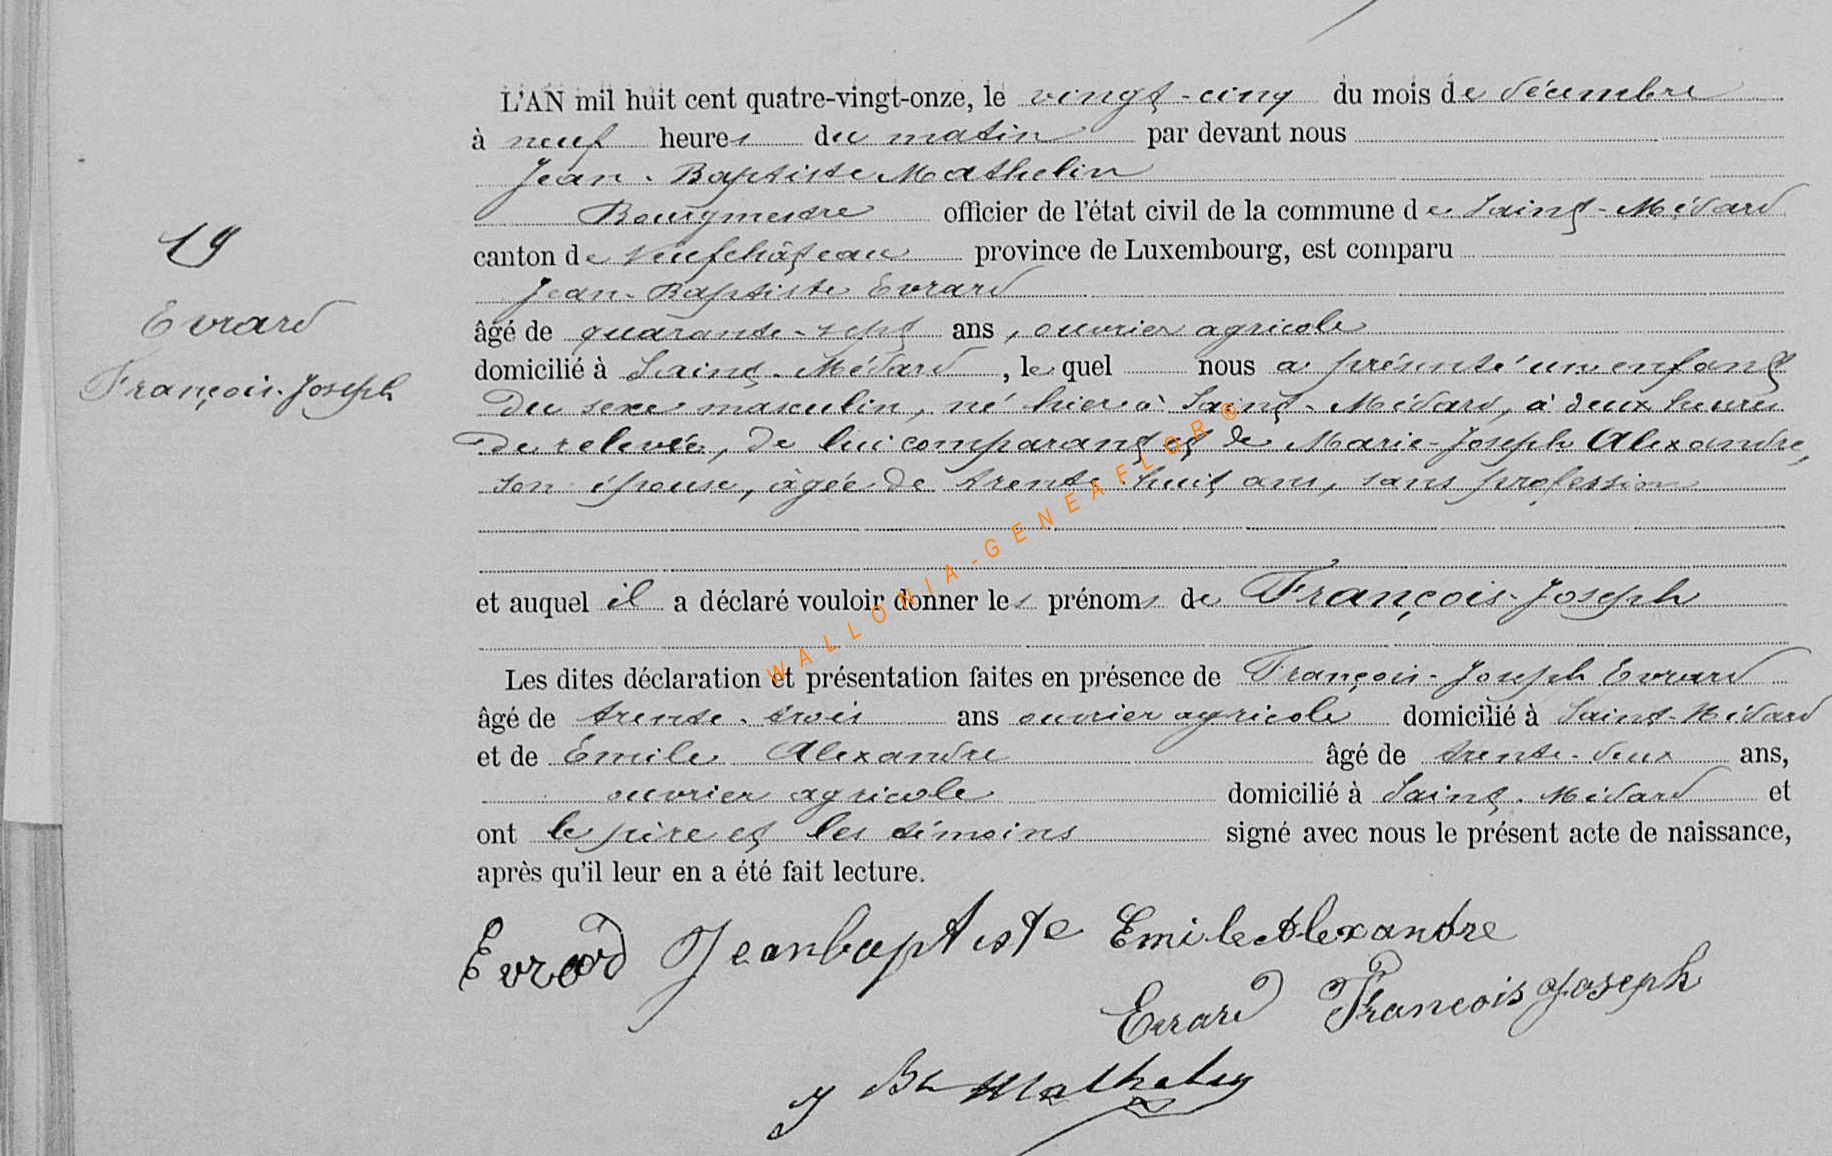 L'AN mil huit cent quatre-vingt-onze, le vingt-cinq du mois de décembre
à neuf heures du matin par devant nous
Jean-Baptiste Mathelin
Bourgmestre officier de l'état civil de la commune de Saint-Médard
19
canton de Neufchâteau province de Luxembourg, est comparu
Jean-Baptiste Evrard
Evrard
âgé de quarante-sept ans, ouvrier agricole
François-Joseph
domicilié à Saint-Médard, lequel nous a présenté un enfant
du sexe masculin, né hier à Saint-Médard, à deux heures
de relevée, de lui comparant et de Marie-Joseph Alexandre,
son épouse, âgée de trente-huit ans, sans profession
et auquel il a déclaré vouloir donner les prénoms de François-Joseph
Les dites déclaration et présentation faites en présence de François-Joseph Evrard
âgé de trente-trois ans ouvrier agricole domicilié à Saint-Médard
et de Emile Alexandre âgé de trente-deux ans,
ouvrier agricole domicilié à Saint-Médard et
ont le père et les témoins signé avec nous le présent acte de naissance,
après qu'il leur en a été fait lecture.
Evrard Jeanbaptiste Emile Alexandre
Evrard Francois Joseph
J Bte Mathelin
WALLONIA-GENEAFLOR®